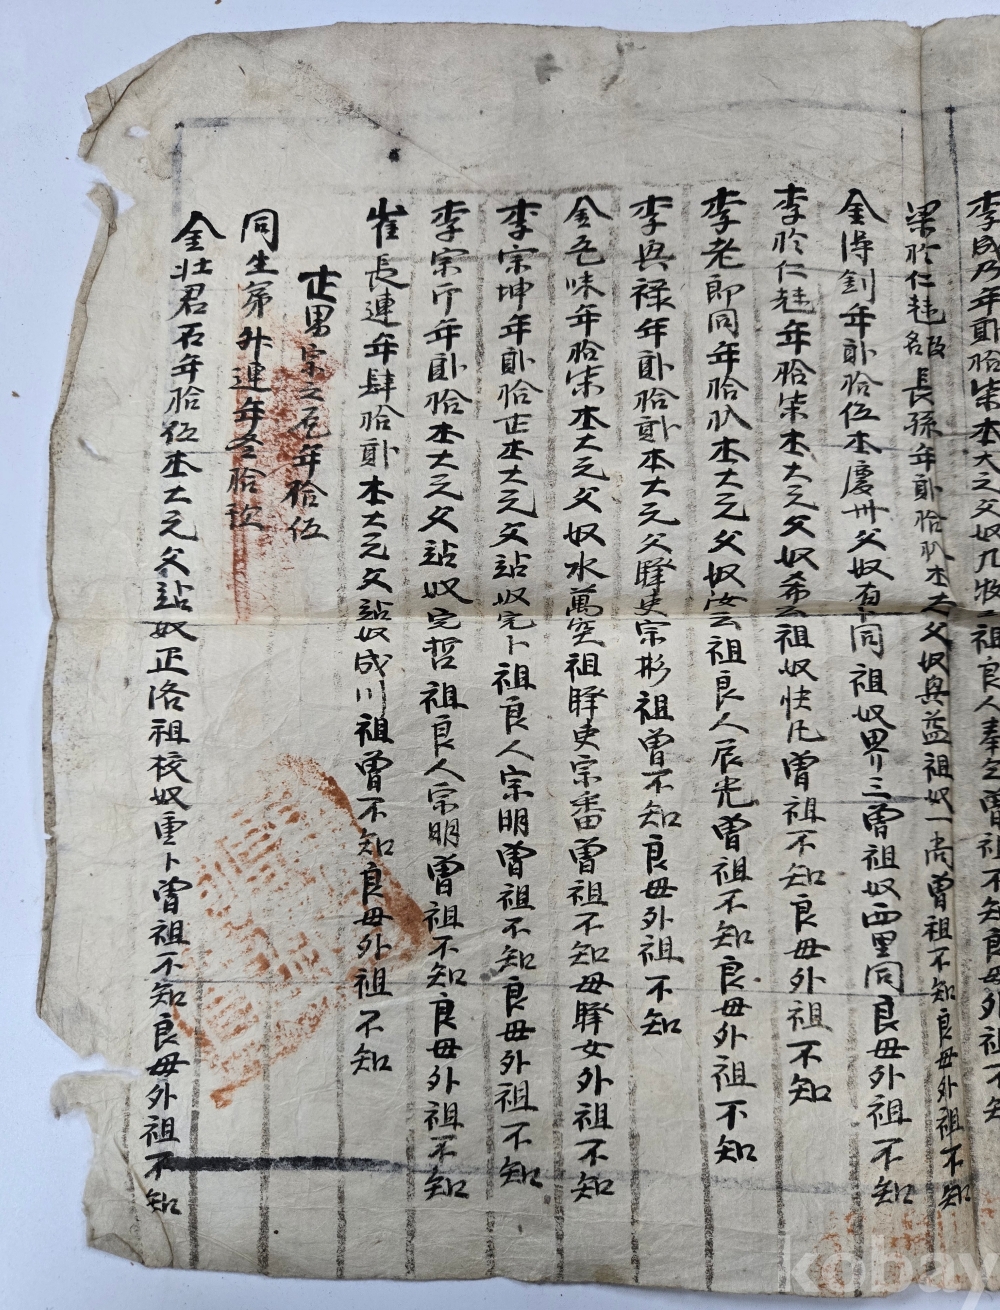 李成乃年貳拾柒本大元父奴 祖良人奉 曽祖不知良母外祖不知
梁於仁 改名長孫年貳拾捌本大父奴興益祖奴一尚曽祖不知良母外祖不知
金得釗年貳拾伍本慶州父奴有卜同祖奴界三曽祖奴西里同良母外祖不知
李於仁 年拾柒本大元父奴希云祖奴快 曽祖不知良母外祖不知
李老郎同年拾捌本大元父奴汝云祖良人辰光曽祖不知良母外祖不知
李興祿年貳拾貳本大元父驛吏宗彬祖曽不知良母外祖不知
金五味年拾柒本大元父奴水萬 祖驛吏宗番曽祖不知母驛女外祖不知
李宗坤年貳拾 本大元父站奴完卜祖良人宗明曽祖不知良母外祖不知
李宗 年貳拾本大元父站奴完哲祖良人宗明曽祖不知良母外祖不知
崔長連年肆拾貳本大元父站奴成川祖曽不知良母外祖不知
男宗 年拾伍
同生弟外連年叁拾
金壯君石年拾伍本大元父站奴正洛祖校奴重卜曽祖不知良母外祖不知
kobay